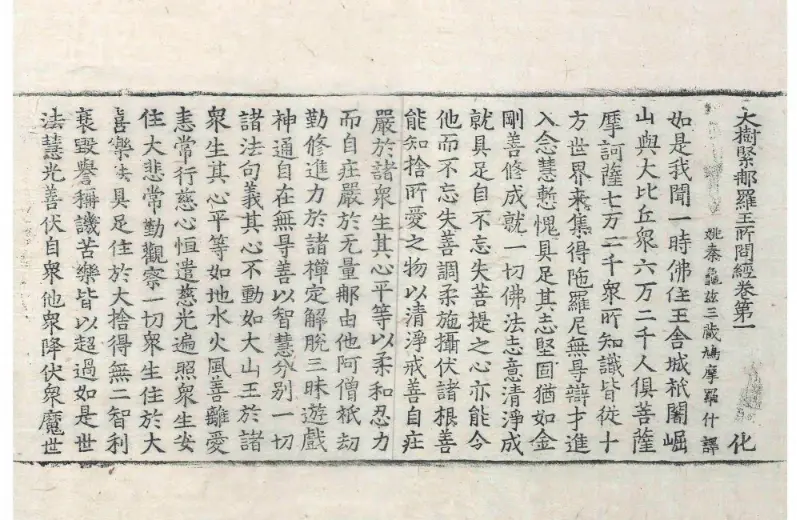 大樹緊那羅王所問經卷第一 化
姚秦龜茲三藏鳩摩羅什譯
如是我聞一時佛住王舍城祇闍崛
山與大比丘衆六万二千人俱菩薩
摩訶薩七万二千衆所知識皆從十
方世界來集得陁羅尼無㝵辯才進
入念慧慙愧具足其志堅固猶如金
剛善修成就一切佛法志意清淨成
就具足自不忘失菩提之心亦能令
他而不忘失善調柔施攝伏諸根善
能知捨所愛之物以清淨戒善自庄
嚴於諸衆生其心平等以柔和忍力
而自庄嚴於无量那由他阿僧祇劫
勤修進力於諸禪定解脫三昧遊戲
神通自在無㝵善以智慧分別一切
諸法句義其心不動如大山王於諸
衆生其心平等如地水火風善離愛
恚常行慈心恒遣慈光遍照衆生安
住大悲常勤觀察一切衆生住於大
喜樂法具足住於大捨得無二智利
衰毀譽稱譏苦樂皆以超過如是世
法慧光善伏自衆他衆降伏衆魔世